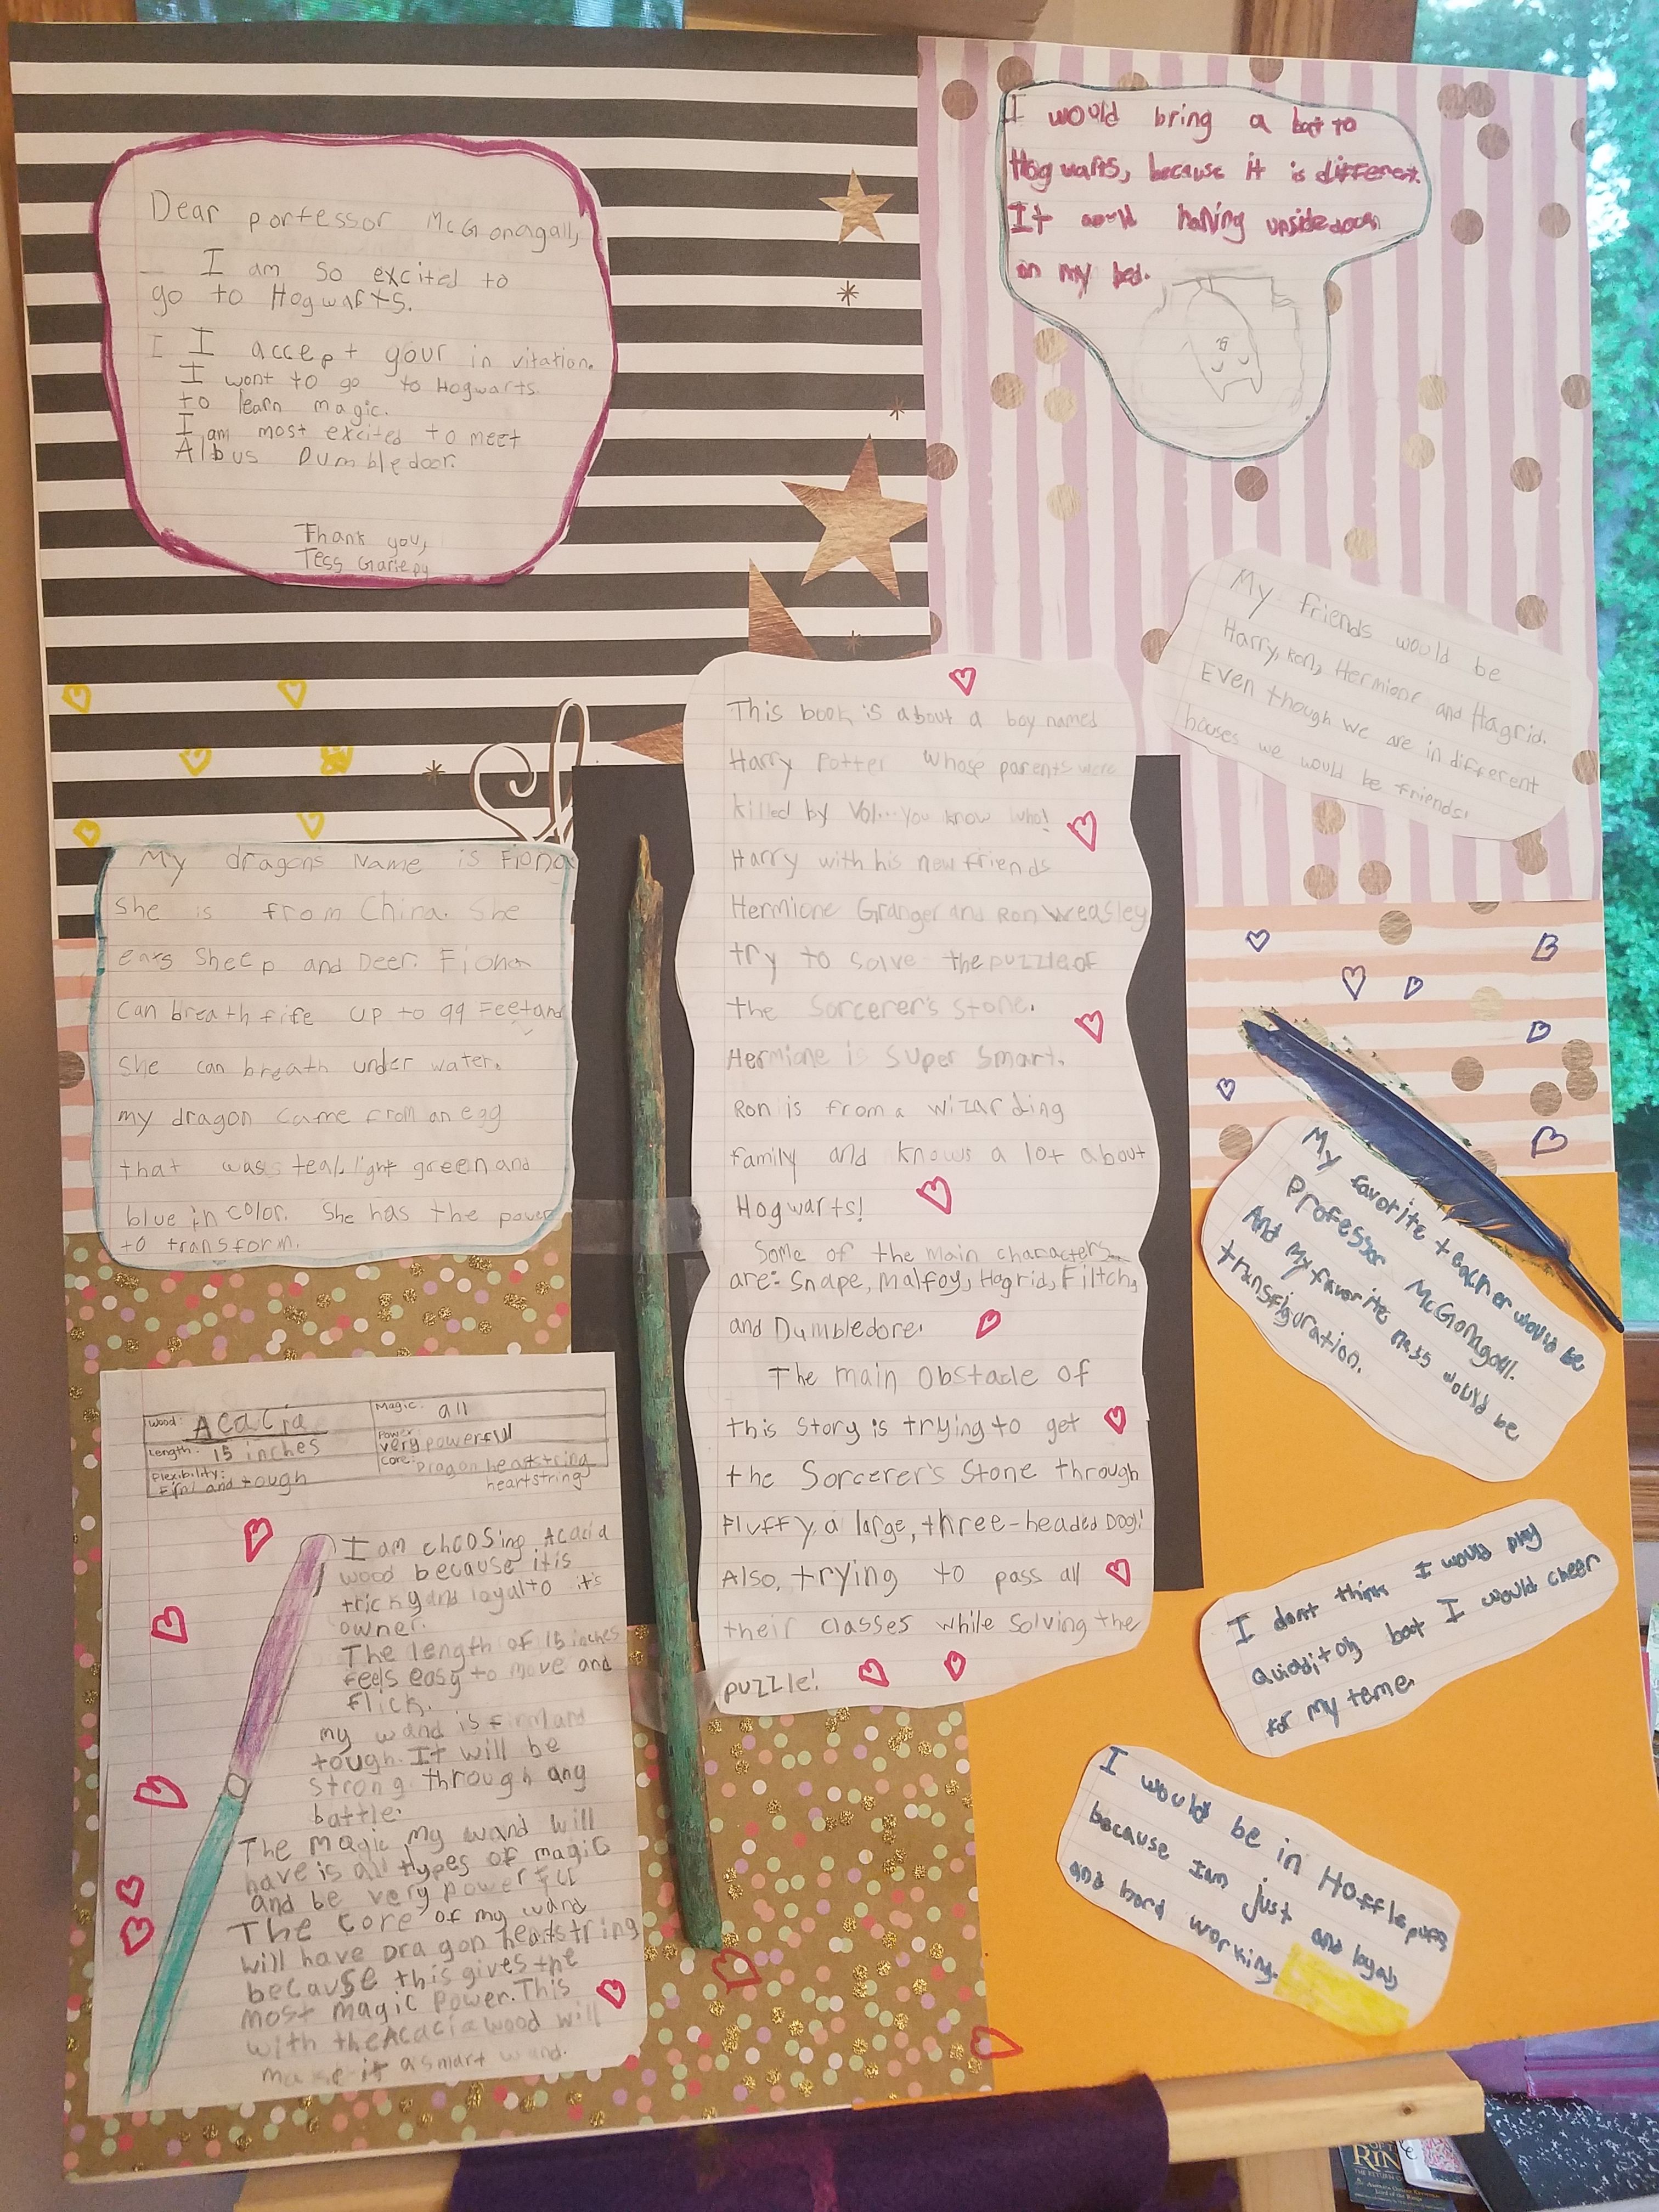 Dear porfessor McGonagall,
I am so excited to
go to Hogwarts.
I I accept your in vitation.
I wont to go to Hogwarts.
to learn magic.
I am most excited to meet
Albus Dumbledoor.
Thank you,
Tess Gariepy
I would bring a bat to
Hogwarts, because it is different.
It would
upsidedown
on my bed.
My friends would be
Harry, Ron, Hermione and Hagrid.
Even though we are in different
houses we would be friends!
This book is about a boy named
Harry Potter whose parents were
killed by Vol...you know who!
Harry with his new friends
Hermione Granger and Ron Weasley
try to solve the puzzle of
the Sorcerer's Stone.
Hermione is super smart.
Ron is from a wizarding
family and knows a lot about
Hogwarts!
Some of the main characters
are: Snape, Malfoy, Hagrid, Filtch,
and Dumbledore.
The main obstacle of
this story is trying to get
the Sorcerer's Stone through
Fluffy, a large, three-headed Dog!
Also, trying to pass all
their classes while solving the
puzzle!
My dragons Name is Fiona
She is from China. She
eats Sheep and Deer. Fiona
can breath fire up to 99 Feet and
she can breath under water.
my dragon came from an egg
that was teal, light green and
blue in color. She has the power
to transform.
Wood: Acacia
Magic: all
Length: 15 inches
Power: very powerful
Flexibility: Firm and tough
Core: Dragon heartstring
heartstring
I am choosing Acacia
wood because it is
tricky and loyal to it's
owner.
The length of 15 inches
feels easy to move and
flick.
my wand is firm and
tough. It will be
strong through any
battle.
The magic my wand will
have is all types of magic
and be very powerful
The core of my wand
will have Dragon heartstring
because this gives the
most magic power. This
with the Acacia wood will
make it a smart wand.
My favorite teacher would be
Professor McGonagall.
And My favorite class would be
transfiguration.
I dont think I would play
but I would cheer
for my teme.
I would be in Hofflepuff
because I am just and loyal
and hard working.
RIN